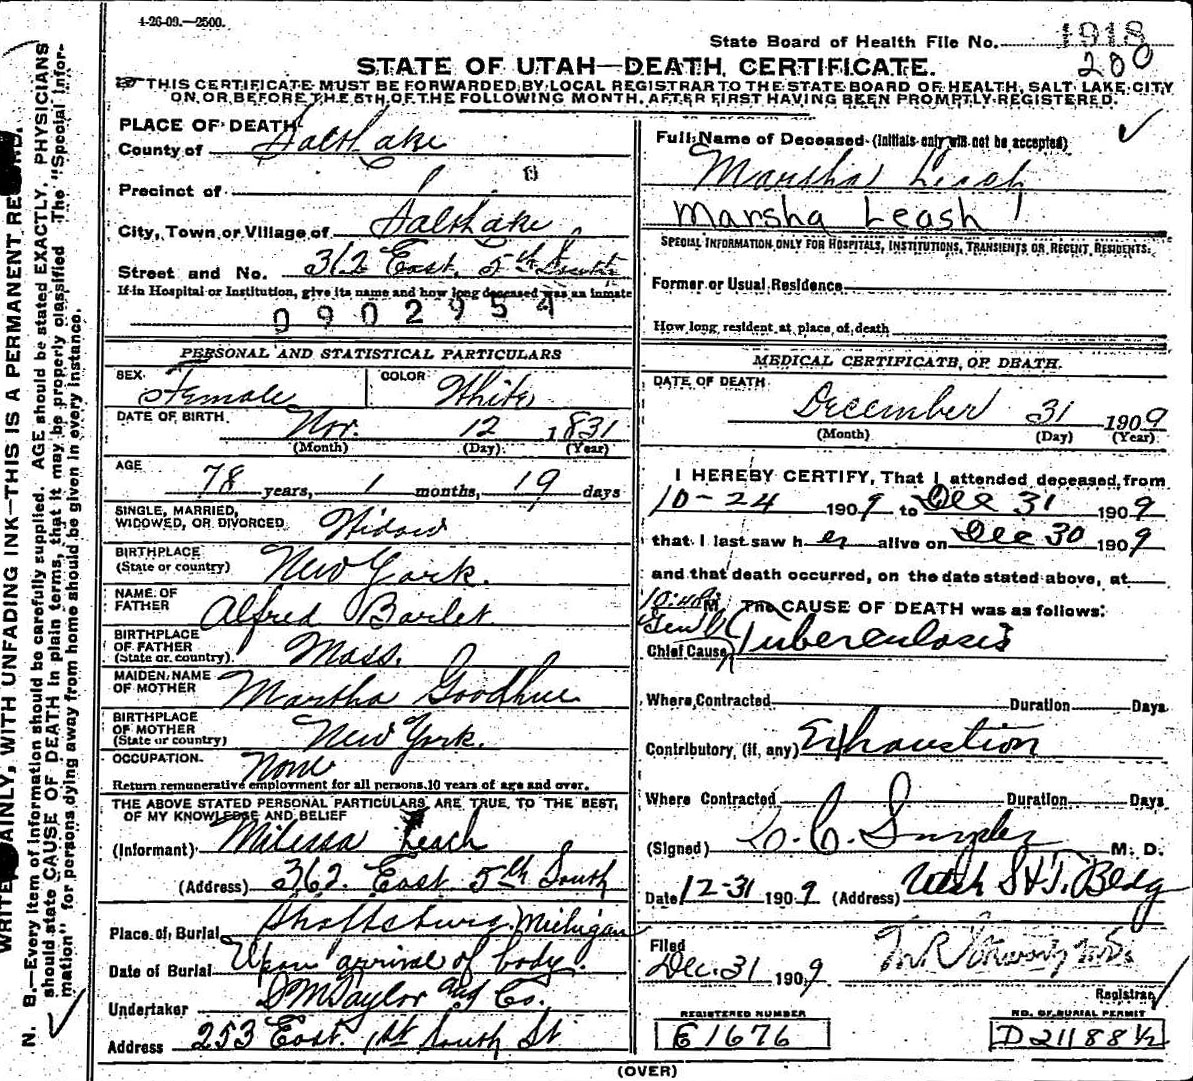 4-26-09.—2500.
State Board of Health File No. 1918
200
STATE OF UTAH—DEATH CERTIFICATE.
THIS CERTIFICATE MUST BE FORWARDED BY LOCAL REGISTRAR TO THE STATE BOARD OF HEALTH, SALT LAKE CITY
ON OR BEFORE THE 5TH OF THE FOLLOWING MONTH, AFTER FIRST HAVING BEEN PROMPTLY REGISTERED.
PLACE OF DEATH
County of Salt Lake
Precinct of
City, Town or Village of Salt Lake
Street and No. 312 East 5th South
If in Hospital or Institution, give its name and how long deceased was an inmate
0902954
PERSONAL AND STATISTICAL PARTICULARS
SEX Female COLOR White
DATE OF BIRTH Nov. 12 1831
(Month) (Day) (Year)
AGE 78 years, 1 months, 19 days
SINGLE, MARRIED,
WIDOWED, OR DIVORCED Widow
BIRTHPLACE
(State or country) New York.
NAME OF
FATHER Alfred Barlet
BIRTHPLACE
OF FATHER
(State or country) Mass.
MAIDEN NAME
OF MOTHER Martha Goodhue
BIRTHPLACE
OF MOTHER
(State or country) New York.
OCCUPATION None
Return remunerative employment for all persons 10 years of age and over.
THE ABOVE STATED PERSONAL PARTICULARS ARE TRUE TO THE BEST
OF MY KNOWLEDGE AND BELIEF
(Informant) Milissa Leach
(Address) 362 East 5th South
Place of Burial Michigan
Date of Burial Upon arrival of body.
Undertaker S M Taylor and Co.
Address 253 East 1st South St
Full Name of Deceased (Initials only will not be accepted)
Marsha Leash
Marsha Leash
SPECIAL INFORMATION ONLY FOR HOSPITALS, INSTITUTIONS, TRANSIENTS OR RECENT RESIDENTS.
Former or Usual Residence
How long resident at place of death
MEDICAL CERTIFICATE OF DEATH.
DATE OF DEATH
December 31 1909
(Month) (Day) (Year)
I HEREBY CERTIFY, That I attended deceased from
10-24 1909 to Dec 31 1909
that I last saw her alive on Dec 30 1909
and that death occurred, on the date stated above, at
M. The CAUSE OF DEATH was as follows:
Chief Cause Tuberculosis
Where Contracted Duration Days
Contributory, (if any) Exhaustion
Where Contracted Duration Days
(Signed) Snyder M. D.
Date 12-31 1909 (Address) Utah S&T. Bldg
Filed
Dec. 31 1909
Registrar
REGISTERED NUMBER
E1676
NO. OF BURIAL PERMIT
D21188½
(OVER)
WRITE PLAINLY, WITH UNFADING INK—THIS IS A PERMANENT RECORD.
N. B.—Every item of information should be carefully supplied. AGE should be stated EXACTLY. PHYSICIANS
should state CAUSE OF DEATH in plain terms, that it may be properly classified. The "Special Infor-
mation" for persons dying away from home should be given in every instance.